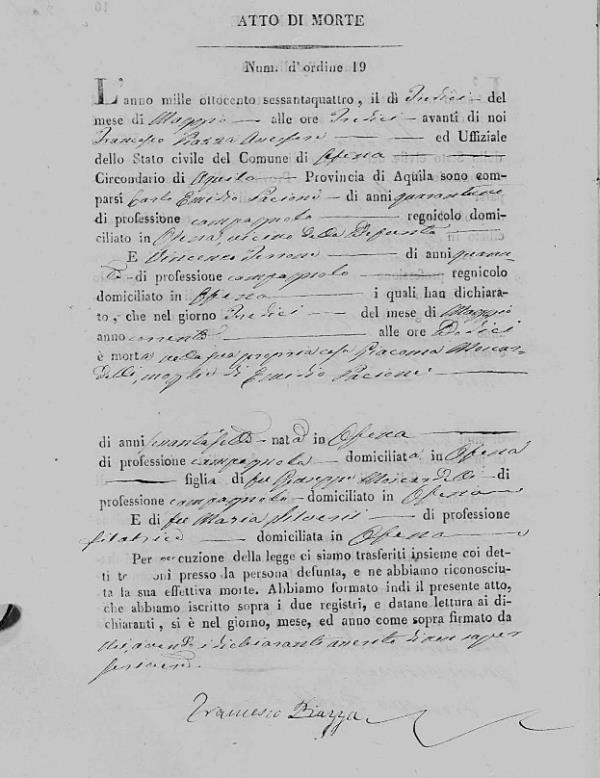 ATTO DI MORTE
Num. d'ordine 19
L'anno mille ottocento sessantaquattro, il dì Tredici - del
mese di Maggio - alle ore Tredici - avanti di noi
Francesco Piazza Assessore ed Uffiziale
dello Stato civile del Comune di Ofena
Circondario di Aquila Provincia di Aquila sono com-
parsi Carlo Emidio Pacioni - di anni
di professione campagnolo regnicolo domi-
ciliato in Ofena, vicino della Defunta
E Vincenzo di anni
di professione campagnolo regnicolo
domiciliato in Ofena i quali han dichiara-
to, che nel giorno Tredici del mese di Maggio
anno corrente alle ore Dodici
è morta nella sua propria casa Giacoma Moscar-
delli, moglie di Emidio Pacioni
di anni nata in Ofena
di professione campagnola domiciliata in Ofena
figlia di fu Giuseppe Moscardelli di
professione campagnolo - domiciliato in Ofena
E di fu Maria Silveri di professione
filatrice domiciliata in Ofena
Per esecuzione della legge ci siamo trasferiti insieme coi det-
ti testimoni presso la persona defunta, e ne abbiamo riconosciu-
ta la sua effettiva morte. Abbiamo formato indi il presente atto,
che abbiamo iscritto sopra i due registri, e datane lettura ai di-
chiaranti, si è nel giorno, mese, ed anno come sopra firmato da
Noi, avendo i dichiaranti asserito di non saper
scrivere.
Francesco Piazza